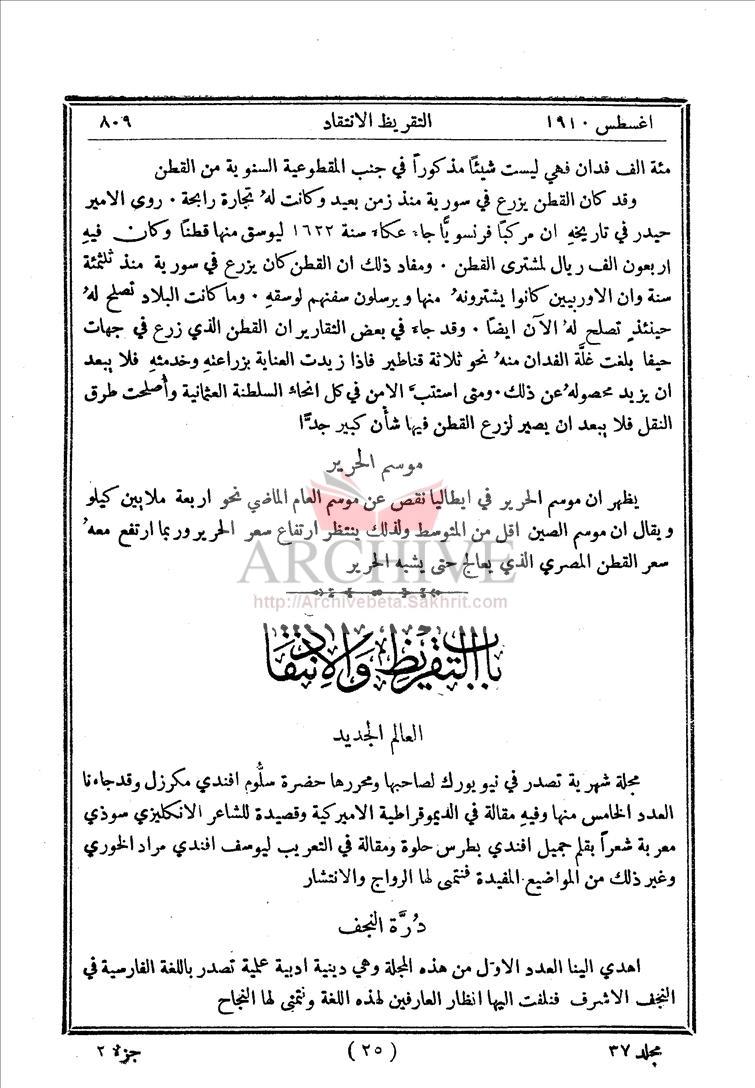 اغسطس ١٩١٠ التقريظ الانتقاد ٨٠٩
مئة الف فدان فهي ليست شيئًا مذكوراً في جنب المقطوعية السنوية من القطن
وقد كان القطن يزرع في سورية منذ زمن بعيد وكانت لهُ تجارة رابحة ٠ روى الامير
حيدر في تاريخهِ ان مركبًا فرنسويًّا جاءَ عكاءَ سنة ١٦٢٢ ليوسق منها قطنًا وكان فيهِ
اربعون الف ريال لمشترى القطن ٠ ومفاد ذلك ان القطن كان يزرع في سورية منذ ثلثمئة
سنة وان الاوربيين كانوا يشترونهُ منها ويرسلون سفنهم لوسقهِ ٠ وما كانت البلاد تصلح لهُ
حينئذٍ تصلح لهُ الآن ايضًا ٠ وقد جاءَ في بعض التقارير ان القطن الذي زرع في جهات
حيفا بلغت غلَّة الفدان منهُ نحو ثلاثة قناطير فاذا زيدت العناية بزراعتهِ وخدمتهِ فلا يبعد
ان يزيد محصولهُ عن ذلك ٠ ومتى استتبَّ الامن في كل انحاء السلطنة العثمانية وأُصلحت طرق
النقل فلا يبعد ان يصير لزرع القطن فيها شأن كبير جدًّا
موسم الحرير
يظهر ان موسم الحرير في ايطاليا نقص عن موسم العام الماضي نحو اربعة ملايين كيلو
ويقال ان موسم الصين اقل من المتوسط ولذلك ينتظر ارتفاع سعر الحرير وربما ارتفع معهُ
سعر القطن المصري الذي يعالج حتى يشبه الحرير
ARCHIVE
http://Archivebeta.Sakhrit.com
باب التقريظ والانتقاد
العالم الجديد
مجلة شهرية تصدر في نيو يورك لصاحبها ومحررها حضرة سلُّوم افندي مكرزل وقد جاءنا
العدد الخامس منها وفيهِ مقالة في الديموقراطية الاميركية وقصيدة للشاعر الانكليزي سوذي
معربة شعراً بقلم جميل افندي بطرس حلوة ومقالة في التعريب ليوسف افندي مراد الخوري
وغير ذلك من المواضيع المفيدة فنتمنى لها الرواج والانتشار
دُرَّة النجف
اهدي الينا العدد الاوَّل من هذه المجلة وهي دينية ادبية علمية تصدر باللغة الفارسية في
النجف الاشرف فنلفت اليها انظار العارفين لهذه اللغة ونتمنى لها النجاح
مجلد ٣٧ (٢٥) جزء ٢